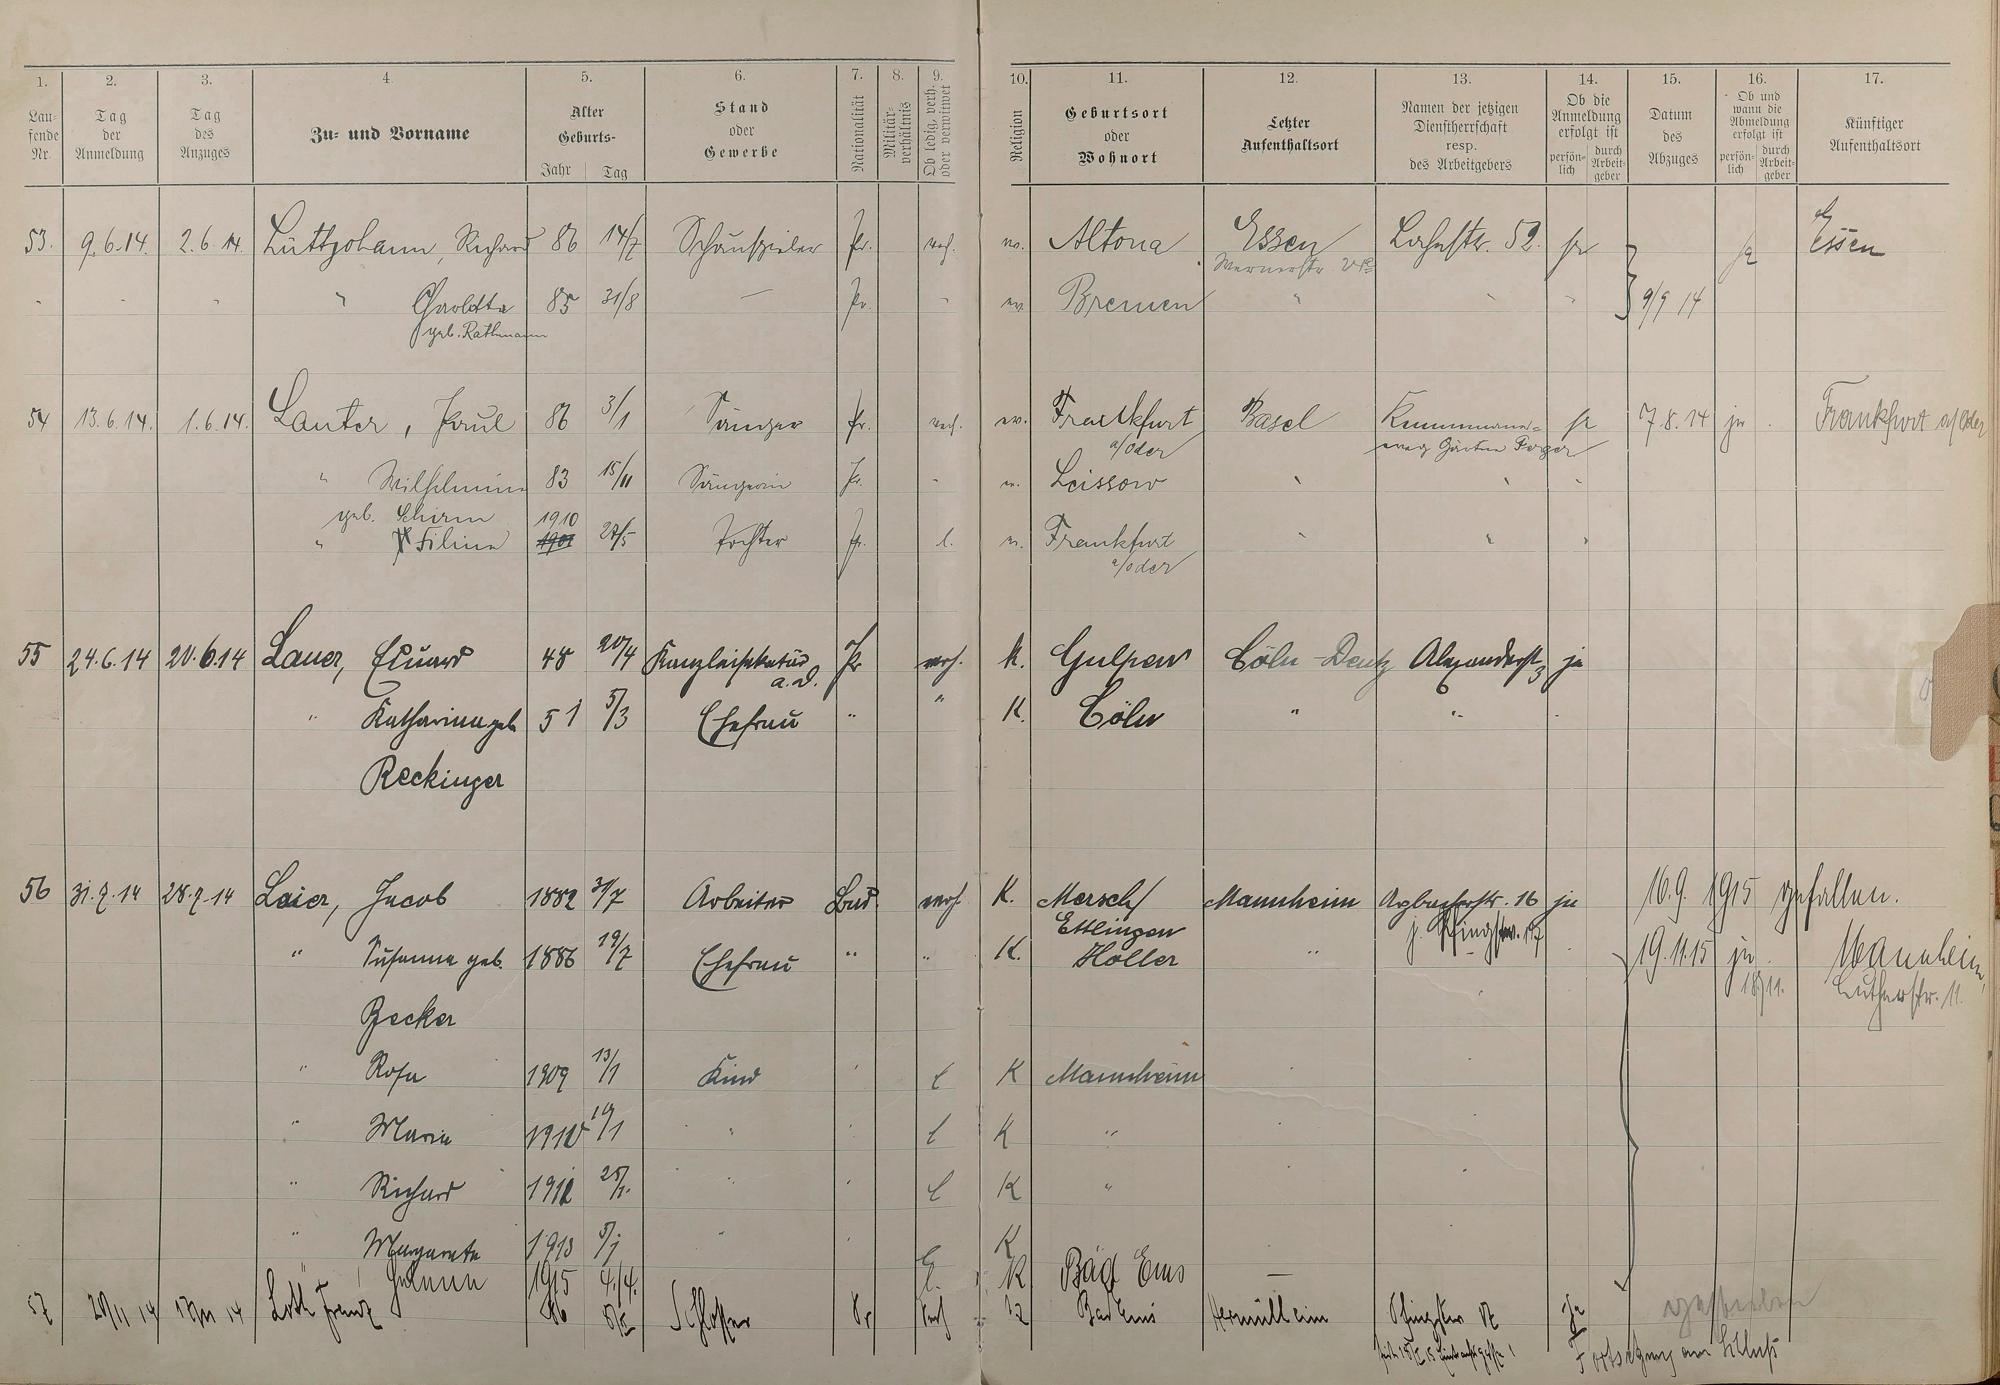 1. 2. 3. 4. 5. 6. 7. 8. 9. 10. 11. 12. 13. 14. 15. 16. 17.
Lau-
fende
Nr.
Tag
der
Anmeldung
Tag
des
Anzuges
Zu- und Vorname
Alter
Geburts-
Jahr Tag
Stand
oder
Gewerbe
Nationalität
Militär-
verhältnis
Ob ledig, verh.
oder verwitwet
Religion
Geburtsort
oder
Wohnort
Letzter
Aufenthaltsort
Namen der jetzigen
Dienstherrschaft
resp.
des Arbeitgebers
Ob die
Anmeldung
erfolgt ist
persön-
lich
durch
Arbeit-
geber
Datum
des
Abzuges
Ob und
wann die
Abmeldung
erfolgt ist
persön-
lich
durch
Arbeit-
geber
Künftiger
Aufenthaltsort
53. 9.6.14. 2.6.14. Lüttjohann, Richard 86 14/7 Schauspieler Pr. verh. Altona Essen 52. ja Essen
" 85 31/8 — Pr. " Bremen " " " 9/9 14
geb. Rathmann
54 13.6.14. 1.6.14. Lauter, Paul 86 3/1 Sänger Pr. verh. ev. Frankfurt Basel ja 7.8.14 ja Frankfurt a/Oder
a/Oder
" Wilhelmine 83 15/11 Sängerin Pr. " Leissow " " "
geb. Schirm 1910
" Filine 1901 27/5 Tochter Pr. l. Frankfurt " " "
a/Oder
55 24.6.14 20.6.14 Lauer, Eduard 48 20/4 Kanzleisekretär Pr verh. K. Gulpen Cöln-Deutz Alexanderst. 3 ja
a.D.
" Katharina geb. 51 5/3 Ehefrau " " K. Cöln " "
Reckinger
56 31.7.14 28.7.14 Laier, Jacob 1882 3/7 Arbeiter Bad verh. K. Mersch/ Mannheim 16 ja 16.9.1915 gefallen.
Ettlingen
" Susanna geb. 1886 19/7 Ehefrau " " K. Holler " 19.11.15 ja. Mannheim,
Becker 18/11. Lutherstr. 11.
" Rosa 1909 13/1 Kind l K Mannheim
" Maria " l K "
" Richard 1912 l K "
" Margareta 1913 K
1915 4./4. l. K Bad Ems —
57 Loth Franz 86 Schlosser Pr verh K Bad Ems Hermülheim ja gestorben
Fortsetzung am Schluß